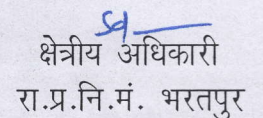 क्षेत्रीय अधिकारी
रा.प्र.नि.मं. भरतपुर